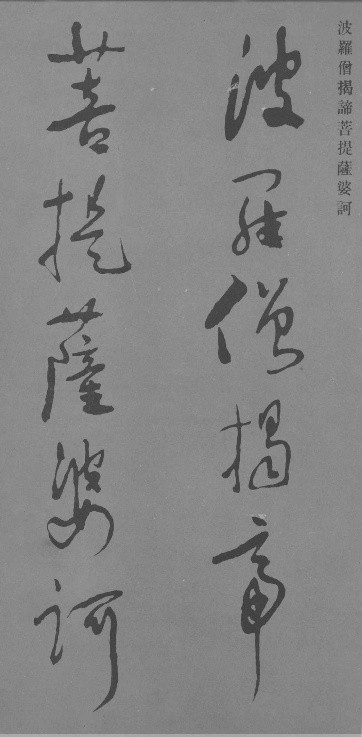 波羅僧揭諦菩提薩婆訶
波羅僧揭帝
菩提薩婆訶